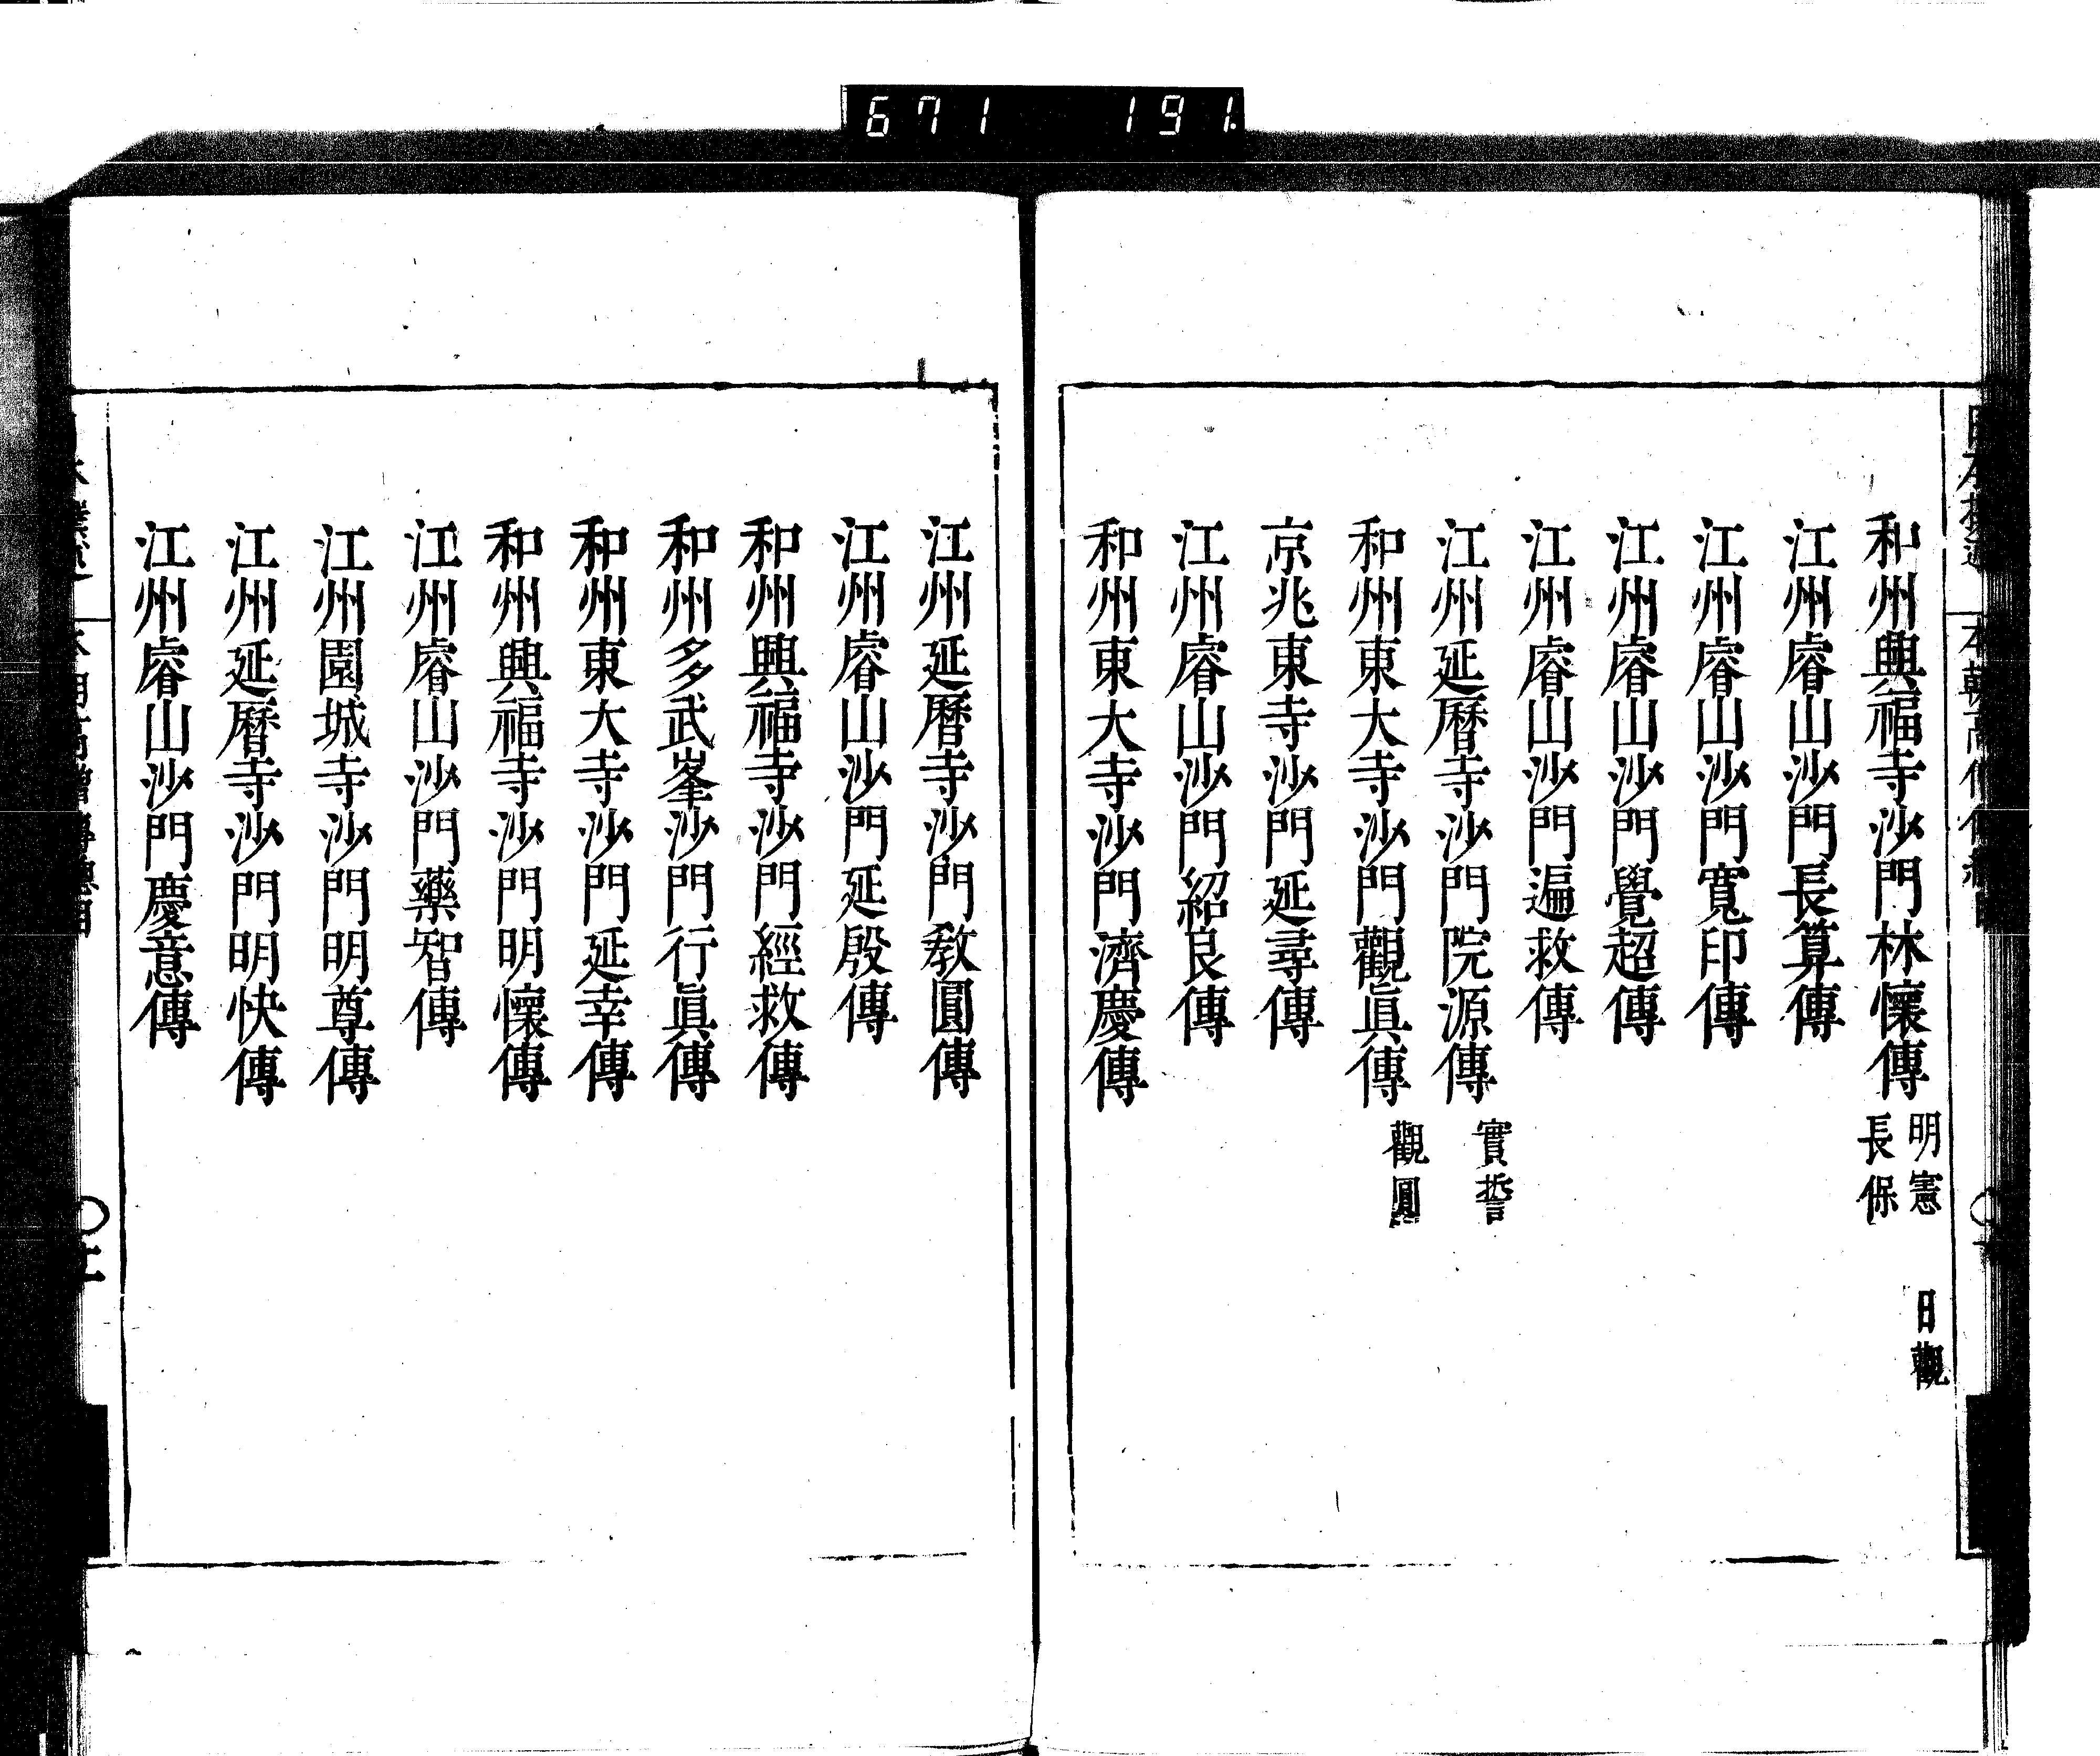 671 191
和州興福寺沙門林懷傳 明憲 日觀 長保
江州睿山沙門長算傳
江州睿山沙門寬印傳
江州睿山沙門覺超傳
江州睿山沙門遍救傳
江州延曆寺沙門院源傳 實誓
和州東大寺沙門觀眞傳 觀圓
京兆東寺沙門延尋傳
江州睿山沙門紹良傳
和州東大寺沙門濟慶傳
江州延曆寺沙門教圓傳
江州睿山沙門延殷傳
和州興福寺沙門經救傳
和州多武峯沙門行眞傳
和州東大寺沙門延幸傳
和州興福寺沙門明懷傳
江州睿山沙門藥智傳
江州園城寺沙門明尊傳
江州延曆寺沙門明快傳
江州睿山沙門慶意傳